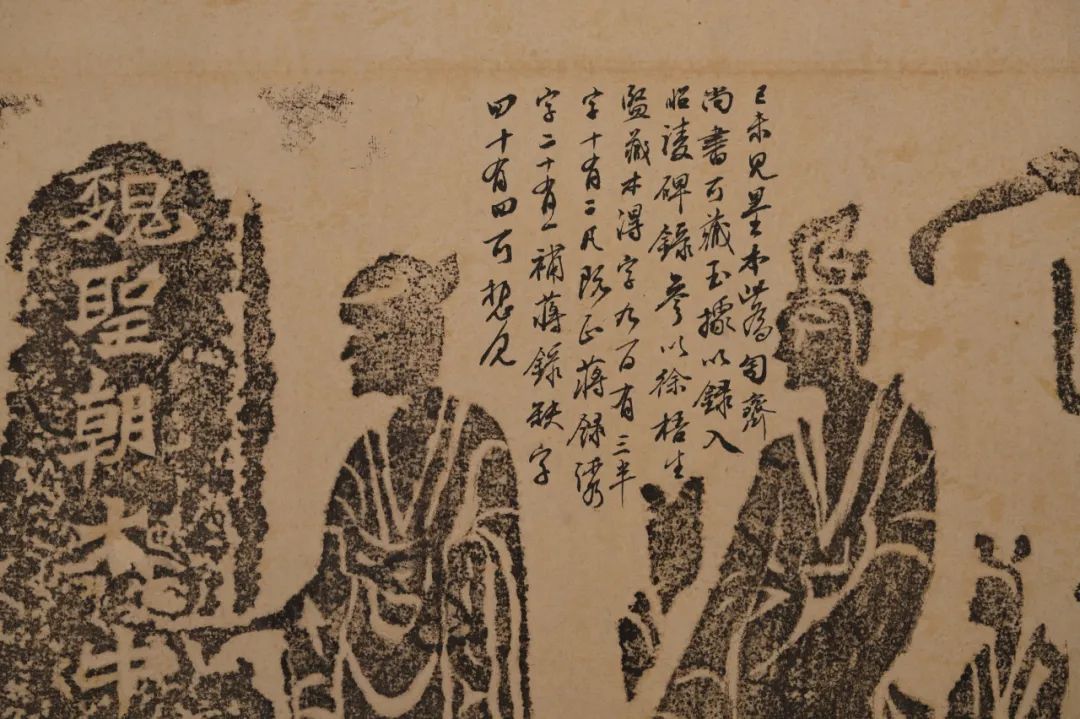 已未見墨本此為匋齋
尚書所藏玉據以録入
昭陵碑録參以徐梧生
監藏本得字九百有三半
字十有二凡改正蔣録
字二十有一補蔣録缺字
四十有四可想見
魏聖朝太中